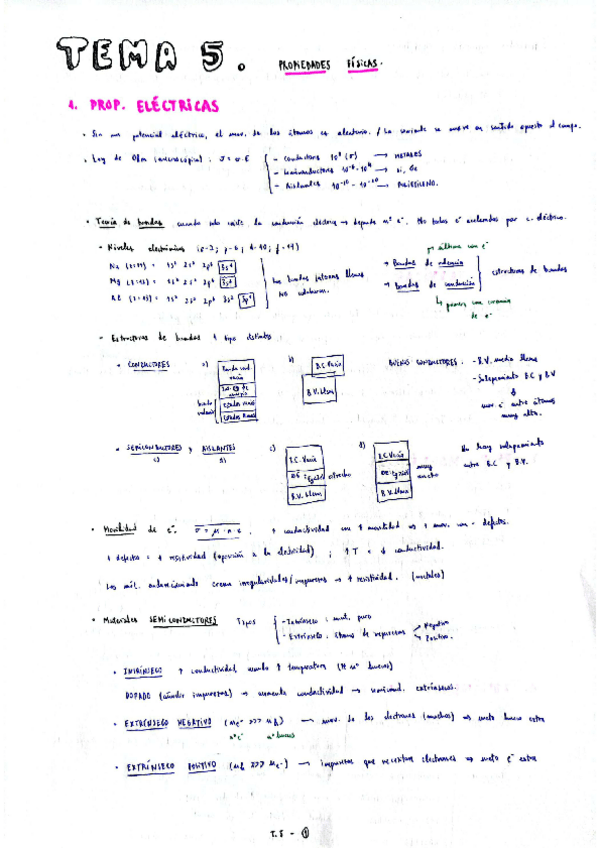 TEMA 5. PROPIEDADES FÍSICAS.
1. PROP. ELÉCTRICAS
· Sin un potencial eléctrico, el mov. de los átomos es aleatorio. / La corriente se mueve en sentido opuesto al campo.
· Ley de Ohm (microscópica): J = σ·E
- Conductores (σ) → METALES
- Semiconductores → Si, Ge
- Aislantes → POLIETILENO.
· Teoría de bandas cuando solo existe la conducción electrónica → depende nº e⁻. No todos e⁻ acelerados por c. eléctrico.
- Niveles electrónicos (s-2; p-6; d-10; f-14)
Na (z=11) = 1s² 2s² 2p⁶ 3s¹
Mg (z=12) = 1s² 2s² 2p⁶ 3s²
Al (z=13) = 1s² 2s² 2p⁶ 3s² 3p¹
Las bandas internas llenas
no
→ Bandas de valencia
→ Bandas de conducción
últimas con e⁻
estructuras de bandas
de e⁻
- Estructuras de bandas 4 tipos distintos:
· CONDUCTORES
a)
Banda cond. vacía
b)
B.C. Vacía
B.V. llena
BUENOS CONDUCTORES
- B.V. medio llena
- Solapamiento B.C y B.V
mov e⁻ entre átomos
muy alto.
· SEMICONDUCTORES y AISLANTES
c)
d)
c)
B.C. Vacía
estrecho
B.V. llena
d)
B.C. Vacía
muy ancho
B.V. llena
No hay solapamiento
entre B.C y B.V.
· Movilidad de e⁻.
↑ conductividad con ↑ movilidad ⇒ ↑ mov. con - defectos.
↑ defectos = ↑ resistividad (oposición a la electricidad) ; ↑ T = ↓ conductividad.
Los mec. endurecimiento crean irregularidades/impurezas → ↑ resistividad. (metales)
· Materiales SEMICONDUCTORES Tipos
- Intrínseco: mat. puro
- Extrínseco: átomos de impurezas
Negativo
Positivo.
· INTRÍNSECO ↑ conductividad cuando ↑ temperatura (↑↑ nº huecos)
DOPADO (añadir impurezas) → aumenta conductividad → semicond. extrínsecos.
· EXTRÍNSECO NEGATIVO (ne⁻ >>> nh) → mov. de los electrones (muchos) ⇒ meto hueco extra
nº e⁻ nº huecos
· EXTRÍNSECO POSITIVO (nh >>> ne⁻) → impurezas que necesitan electrones → meto e⁻ extra
T.5 - ①